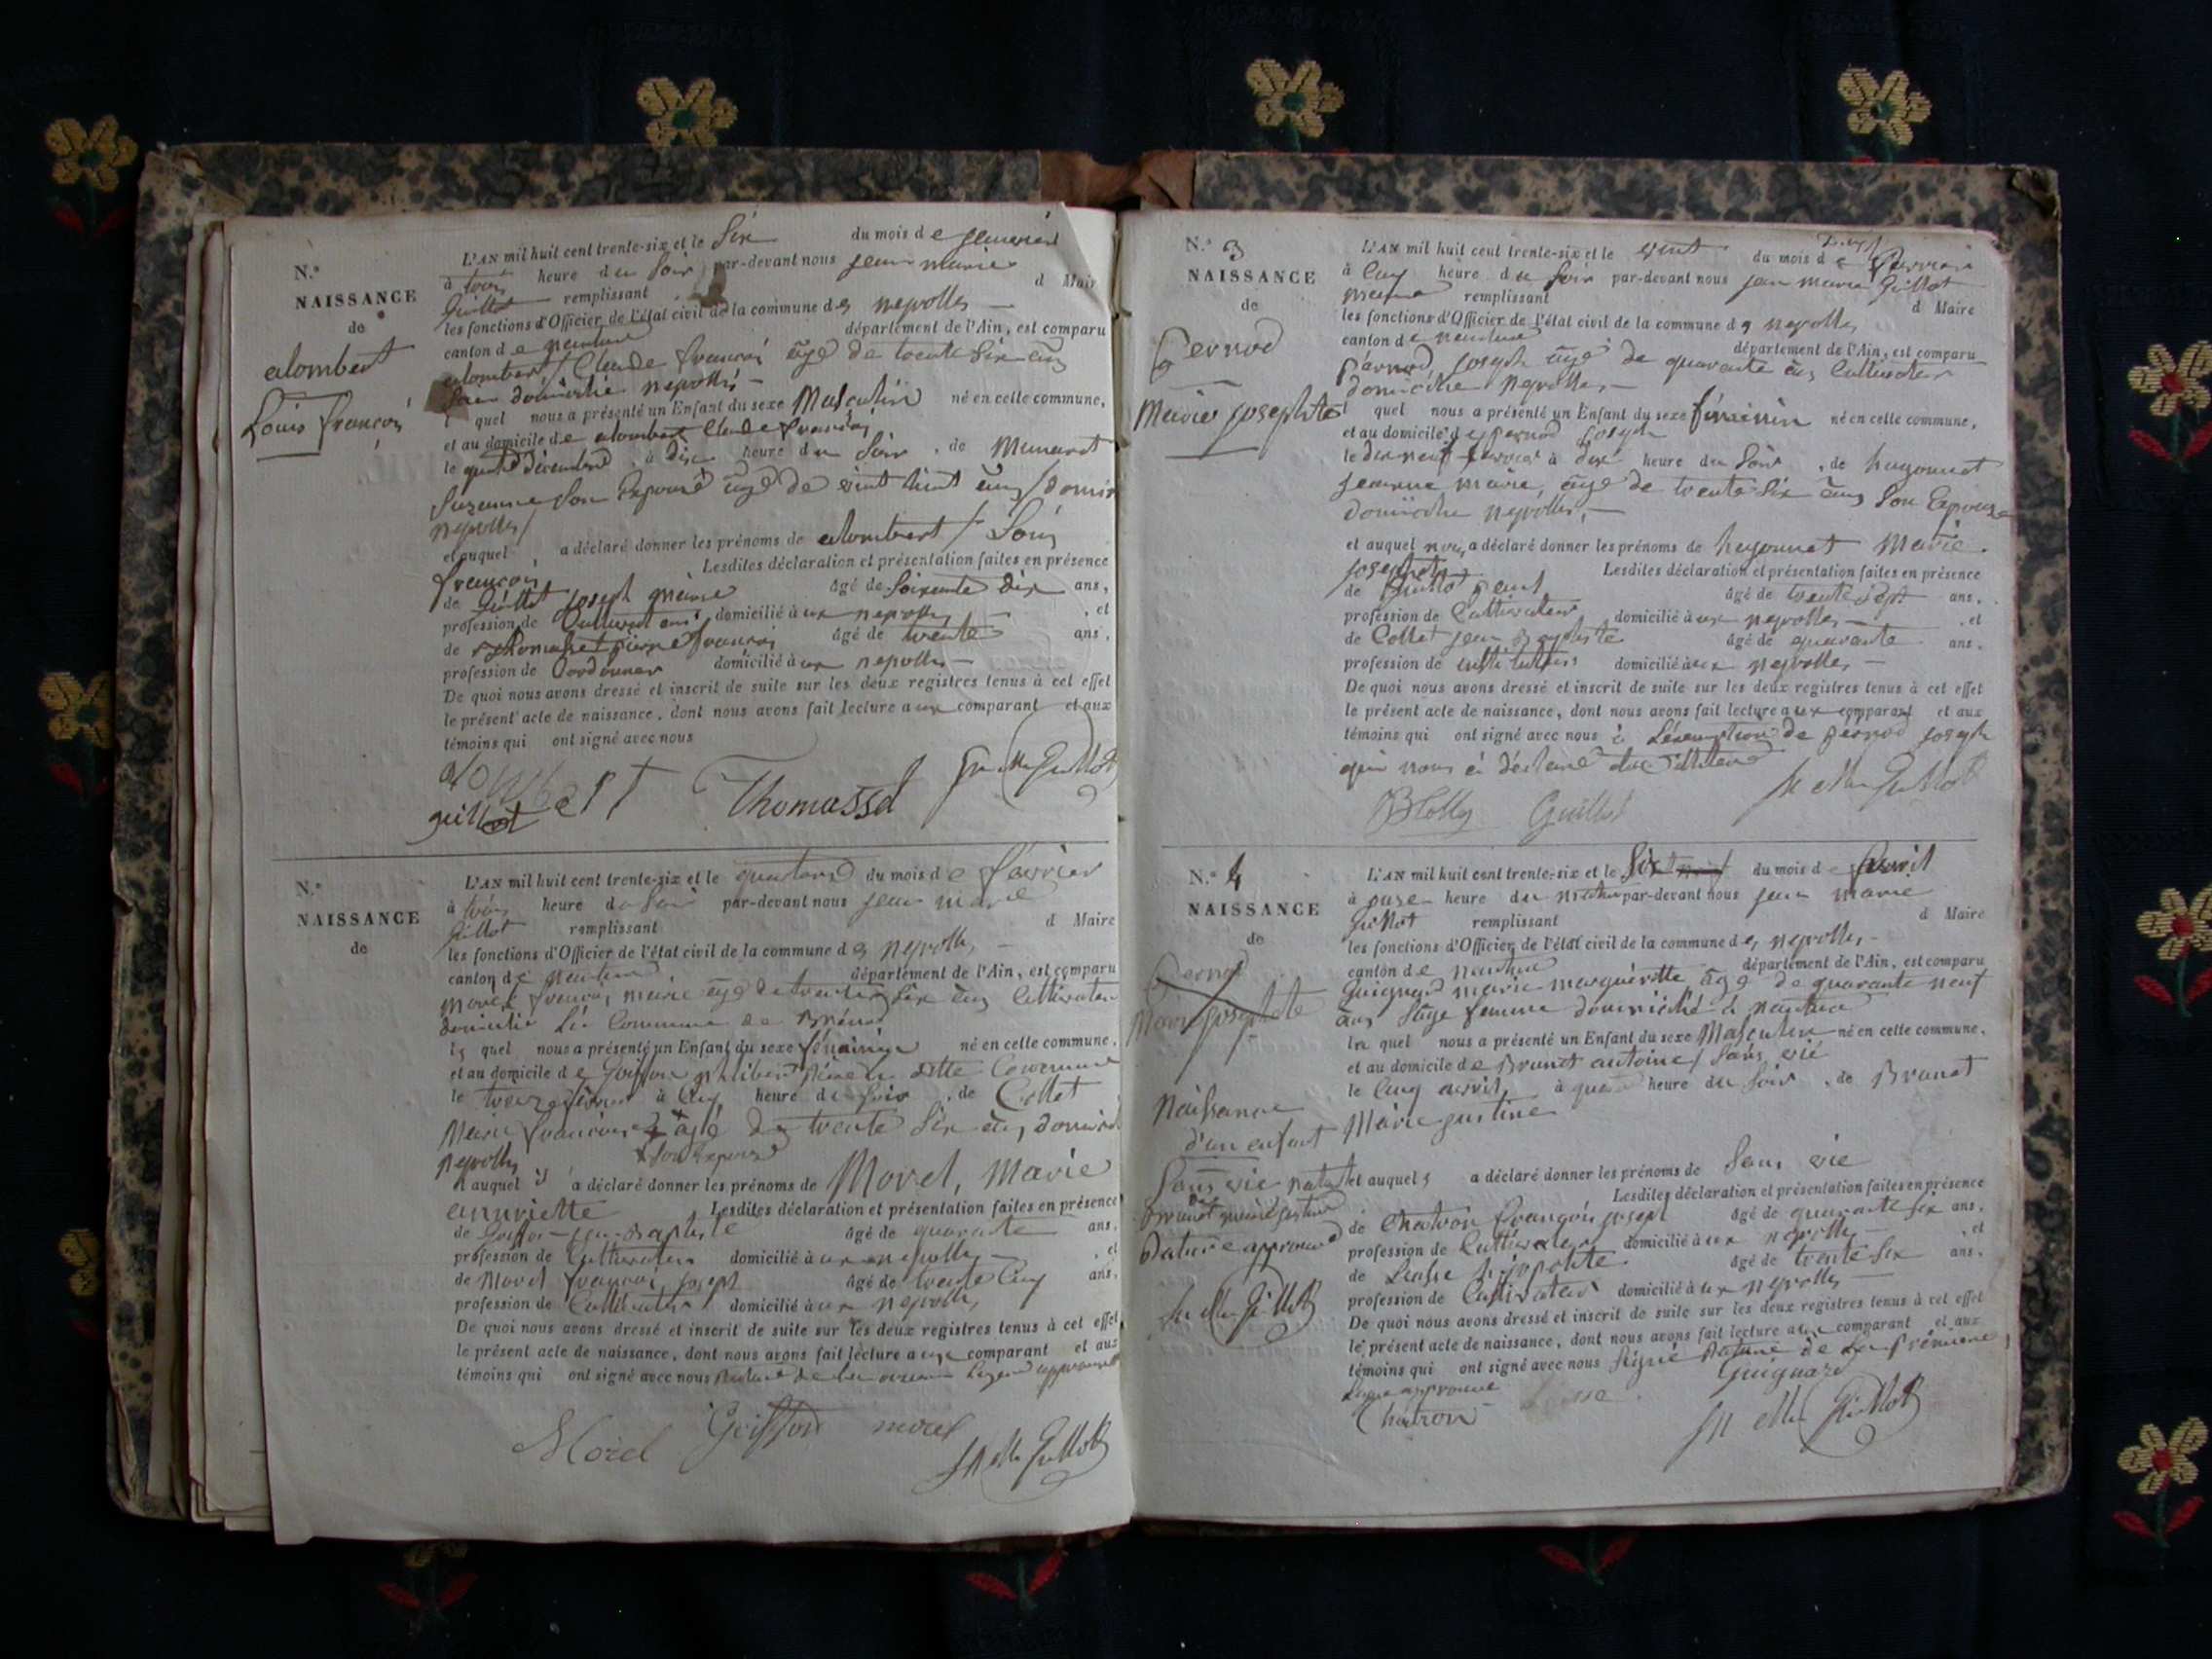 N.º
NAISSANCE
de
alombert
Louis françois
L'AN mil huit cent trente-six et le Six du mois de
à trois heure du Soir par-devant nous jean marie
Guillot remplissant d Maire
les fonctions d'Officier de l'état civil de la commune des neyrolles
canton de nantua département de l'Ain, est comparu
alombert / Claude françois âgé de trente Six ans
domicilié neyrolles
l quel nous a présenté un Enfant du sexe Masculin né en cette commune,
et au domicile de alombert Claude françois
le à dix heure du Soir, de
Suzanne Son Epouse âgé de vint huit ans / domicilié
neyrolles /
et auquel a déclaré donner les prénoms de alombert / Louis
françois Lesdites déclaration et présentation faites en présence
de Guillot joseph âgé de Soixante dix ans,
profession de domicilié à ux neyrolles, et
de thomasset pierre françois âgé de trente ans,
profession de Cordonnier domicilié à ux neyrolles
De quoi nous avons dressé et inscrit de suite sur les deux registres tenus à cet effet
le présent acte de naissance, dont nous avons fait lecture aux comparant et aux
témoins qui ont signé avec nous
alombert Thomasset
guillot
N.º
NAISSANCE
de
L'AN mil huit cent trente-six et le quatorze du mois de favrier
à trois heure du Soir par-devant nous jean marie
Guillot remplissant d Maire
les fonctions d'Officier de l'état civil de la commune des neyrolles
canton de nantua département de l'Ain, est comparu
morel françois marie âgé de trente Six ans Cultivateur
domicilié Commune de
le quel nous a présenté un Enfant du sexe féminin né en cette commune,
et au domicile de ditte Commune
le à Cinq heure du Soir, de Collet
Marie françoise âgé de trente Six ans domicilié
neyrolles Son Epouse
et auquel il a déclaré donner les prénoms de Morel, Marie
anriette Lesdites déclaration et présentation faites en présence
de jean Baptiste âgé de quarante ans,
profession de Cultivateur domicilié à ux neyrolles, et
de Morel françois joseph âgé de trente Cinq ans,
profession de Cultivateur domicilié à ux neyrolles
De quoi nous avons dressé et inscrit de suite sur les deux registres tenus à cet effet
le présent acte de naissance, dont nous avons fait lecture aux comparant et aux
témoins qui ont signé avec nous
Morel morel
N.º 3
NAISSANCE
de
Pernod
Marie josephte
L'AN mil huit cent trente-six et le vint du mois de
à Cinq heure du Soir par-devant nous jean marie Guillot
remplissant d Maire
les fonctions d'Officier de l'état civil de la commune des neyrolles
canton de nantua département de l'Ain, est comparu
pernod joseph âgé de quarante ans Cultivateur
domicilié neyrolles
l quel nous a présenté un Enfant du sexe féminin né en cette commune,
et au domicile de pernod joseph
le dixneuf à dix heure du Soir, de hugonnet
jeanne marie, âgé de trente Six ans Son Epouse
domicilié neyrolles,
et auquel nous a déclaré donner les prénoms de hugonnet Marie
josephte Lesdites déclaration et présentation faites en présence
de Guillot âgé de trente sept ans,
profession de Cultivateur domicilié à ux neyrolles, et
de Collet jean Baptiste âgé de quarante ans,
profession de instituteur domicilié à ux neyrolles
De quoi nous avons dressé et inscrit de suite sur les deux registres tenus à cet effet
le présent acte de naissance, dont nous avons fait lecture aux comparant et aux
témoins qui ont signé avec nous à Léxemption de pernod joseph
qui nous à déclaré
Guillot
N.º 4
NAISSANCE
de
Pernod
Marie josephte
Naissance
d'un enfant
Sans vie
L'AN mil huit cent trente-six et le Six du mois de avril
à onze heure du matin par-devant nous jean marie
Guillot remplissant d Maire
les fonctions d'Officier de l'état civil de la commune des neyrolles
canton de nantua département de l'Ain, est comparu
Guignard marie marguéritte âgé de quarante neuf
ans Sage femme domicilié à nantua
la quel nous a présenté un Enfant du sexe Masculin né en cette commune,
et au domicile de Brunet antoine / Sans vie
le Cinq avril, à heure du Soir, de Brunet
Marie justine
et auquel a déclaré donner les prénoms de Sans vie
Lesdites déclaration et présentation faites en présence
de Chatron françois joseph âgé de quarante six ans,
profession de Cultivateur domicilié à ux neyrolles, et
de âgé de trente Six ans,
profession de Cultivateur domicilié à ux neyrolles
De quoi nous avons dressé et inscrit de suite sur les deux registres tenus à cet effet
le présent acte de naissance, dont nous avons fait lecture aux comparant et aux
témoins qui ont signé avec nous
Guignard
Chatron